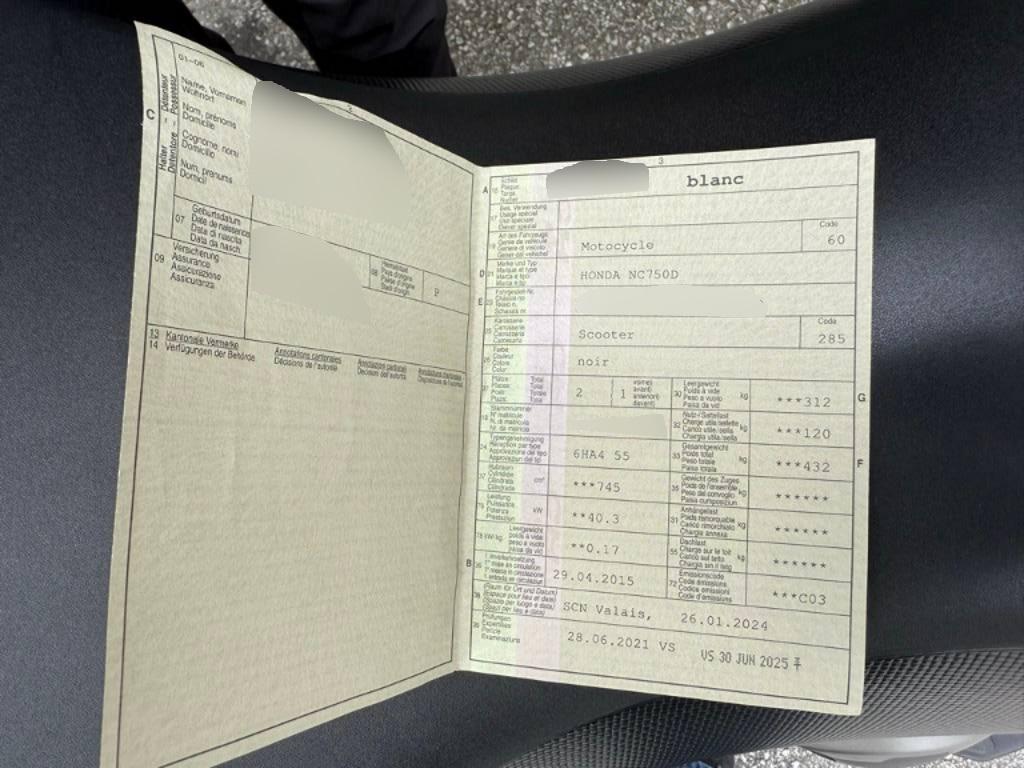 01-06
3
C
Halter - Détenteur
Detentore - Possessur
Name, Vornamen
Wohnort
Nom, prénoms
Domicile
Cognome, nomi
Domicilio
Num, prenums
Domicil
07
Geburtsdatum
Date de naissance
Data di nascita
Data da nasch.
08
Heimatstaat
P
09
Versicherung
Assurance
Assicurazione
Assicuranza
13 Kantonale Vermerke
14 Verfügungen der Behörde
Annotations cantonales
Décisions de l'autorité
Annotazioni cantonali
Decisioni dell'autorità
3
A 15
Schild
Plaque
Targa
blanc
17
Bes. Verwendung
Usage spécial
Uso speciale
19
Art des Fahrzeugs
Genre de véhicule
Genere di veicolo
Motocycle
Code
60
D 21
Marke und Typ
Marque et type
Marca e tipo
Marca e tip
HONDA NC750D
E 23
Fahrgestell-Nr.
Châssis no
Telaio n.
Schassis nr.
25
Karosserie
Carrosserie
Carrozzeria
Carossaria
Scooter
Code
285
26
Farbe
Couleur
Colore
Color
noir
27
Plätze: Total
Places: Total
Posti: Totale
Plazs: Total
2
1
vorne)
avant)
anteriori)
davant)
30
Leergewicht
Poids à vide
Peso a vuoto
Paisa da vid
kg
***312
G
18
Stammnummer
N° matricule
N. di matricola
Nr. da matricla
32
Nutz-/Sattellast
Charge utile/sellette
Carico utile/sella
Chargia utila/sella
kg
***120
24
Typengenehmigung
Réception par type
Approvazione del tipo
Approvaziun dal tip
6HA4 55
33
Gesamtgewicht
Poids total
Peso totale
Paisa totala
kg
***432
F
37
Hubraum
Cylindrée
Cilindrata
Cilindrada
cm³
***745
35
Gewicht des Zuges
Poids de l'ensemble
Peso del convoglio
Paisa cumposiziun
kg
******
76
Leistung
Puissance
Potenza
Prestaziun
kW
**40.3
31
Anhängelast
Poids remorquable
Carico rimorchiato
Chargia annexa
kg
******
78 kW/kg
Leergewicht
poids à vide
peso a vuoto
paisa da vid
**0.17
55
Dachlast
Charge sur le toit
Carico sul tetto
Chargia sin il tetg
kg
******
B 36
1. Inverkehrsetzung
1re mise en circulation
1a messa in circolazione
29.04.2015
72
Emissionscode
Code émissions
Codice emissioni
Code d'emissiuns
***C03
38
(Raum für Ort und Datum)
(Espace pour lieu et date)
(Spazio per luogo e data)
(Spazi per lieu e data)
SCN Valais, 26.01.2024
39
Prüfungen
Expertises
Perizie
Examinaziuns
28.06.2021 VS
VS 30 JUN 2025